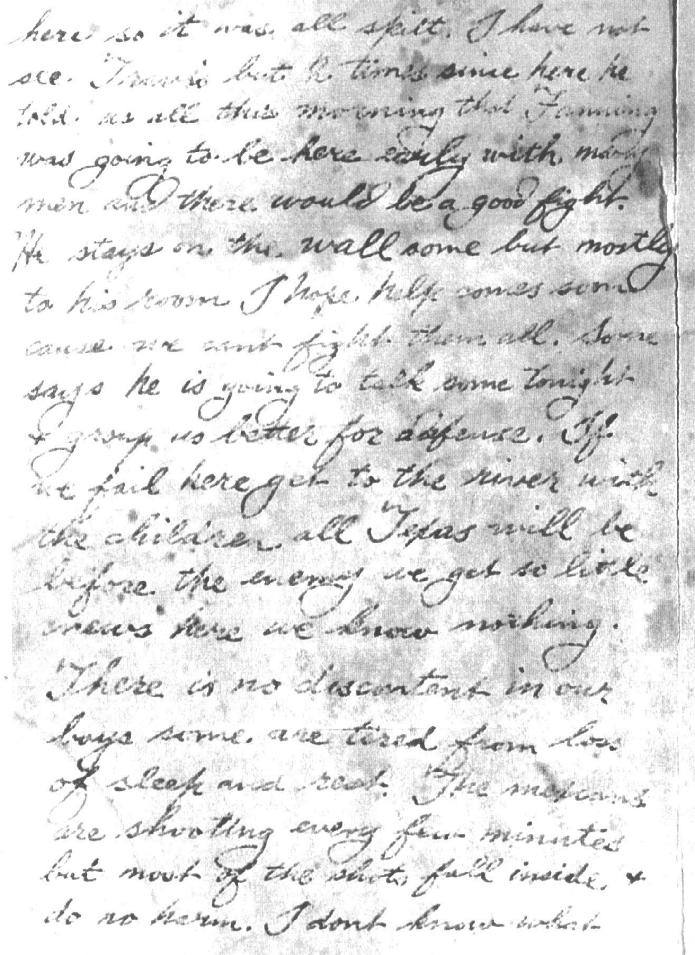 here so it was all spilt. I have not
see Travis but 2 times since here he
told us all this morning that Fanning
was going to be here early with many
men and there would be a good fight.
He stays on the wall some but mostly
to his room I hope help comes soon
cause we cant fight them all. Some
says he is going to talk some tonight
& group us better for defense. If
we fail here get to the river with
the children all Texas will be
before the enemy we get so little
news here we know nothing.
There is no discontent in our
boys some are tired from loss
of sleep and rest. The mexicans
are shooting every few minutes
but most of the shots fall inside &
do no harm. I dont know what